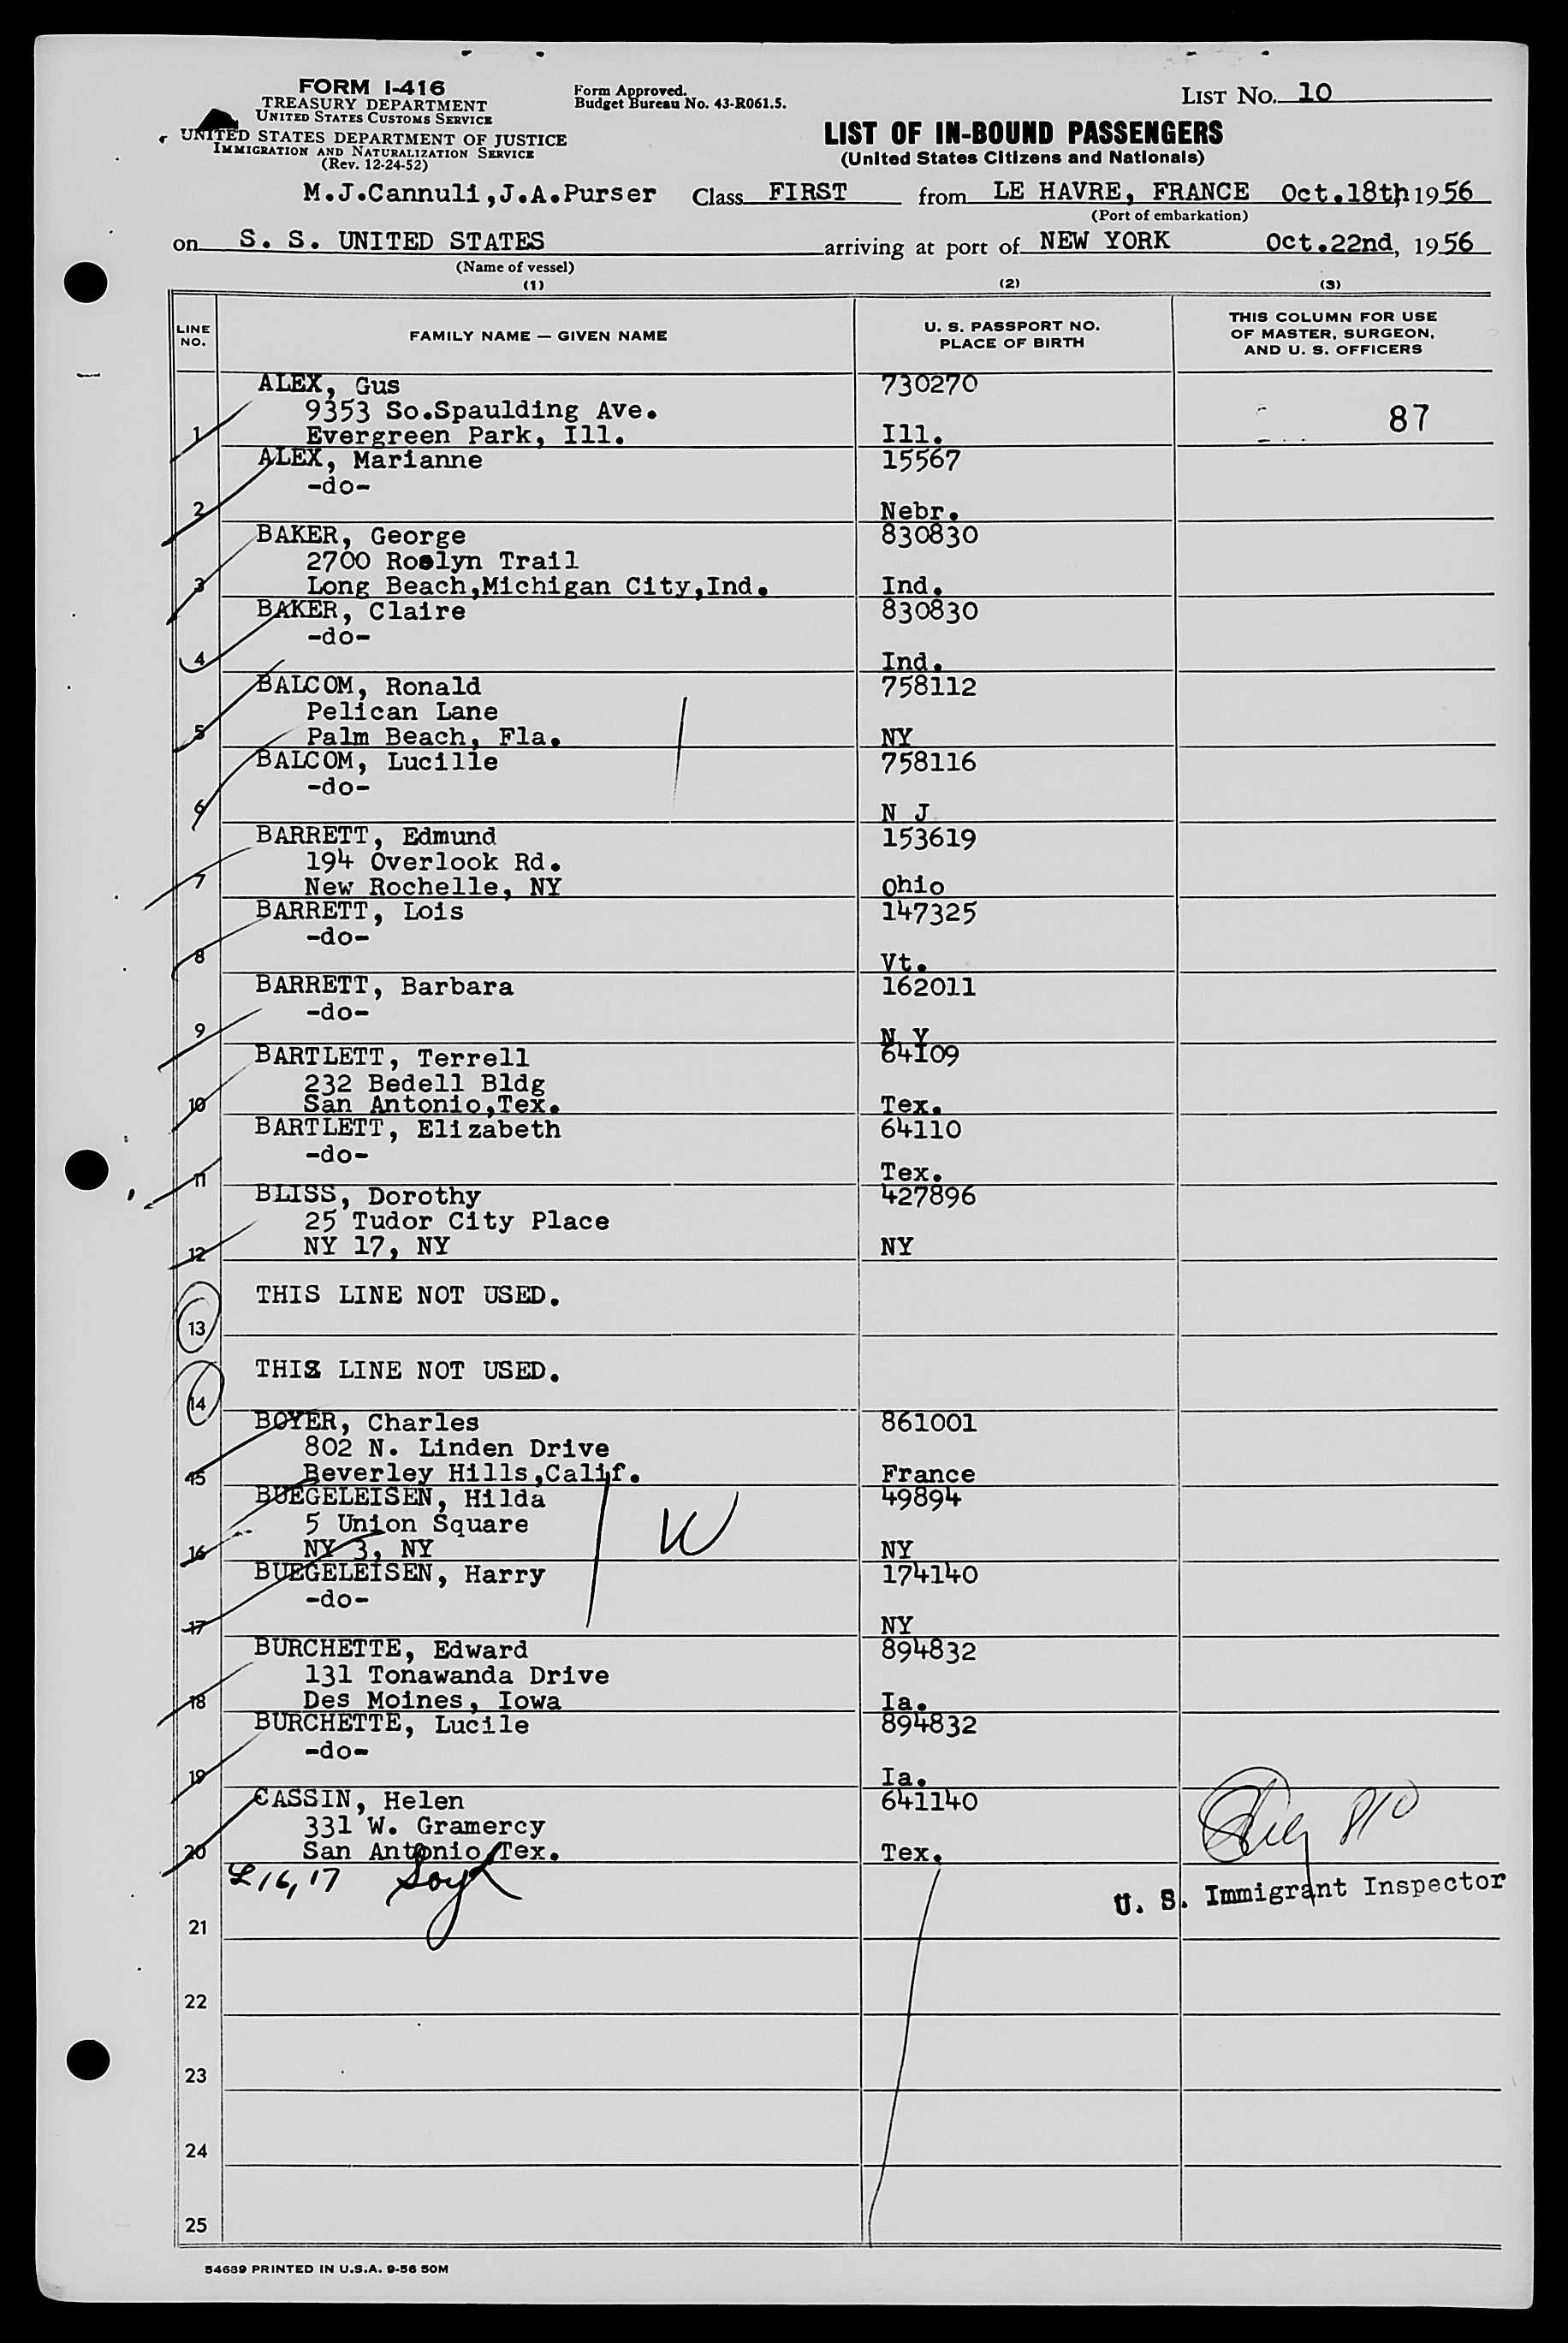 FORM I-416
TREASURY DEPARTMENT
UNITED STATES CUSTOMS SERVICE
UNITED STATES DEPARTMENT OF JUSTICE
IMMIGRATION AND NATURALIZATION SERVICE
(Rev. 12-24-52)
Form Approved.
Budget Bureau No. 43-R061.5.
LIST No. 10
LIST OF IN-BOUND PASSENGERS
(United States Citizens and Nationals)
M.J.Cannuli,J.A.Purser Class FIRST from LE HAVRE, FRANCE Oct.18th, 1956
(Port of embarkation)
on S. S. UNITED STATES arriving at port of NEW YORK Oct.22nd, 1956
(Name of vessel)
(1) (2) (3)
LINE NO. FAMILY NAME — GIVEN NAME U. S. PASSPORT NO. PLACE OF BIRTH THIS COLUMN FOR USE OF MASTER, SURGEON, AND U. S. OFFICERS
ALEX, Gus 730270
9353 So.Spaulding Ave. 87
1 Evergreen Park, Ill. Ill.
ALEX, Marianne 15567
-do-
2 Nebr.
BAKER, George 830830
2700 Roslyn Trail
3 Long Beach,Michigan City,Ind. Ind.
BAKER, Claire 830830
-do-
4 Ind.
BALCOM, Ronald 758112
Pelican Lane
5 Palm Beach, Fla. NY
BALCOM, Lucille 758116
-do-
6 N J
BARRETT, Edmund 153619
194 Overlook Rd.
7 New Rochelle, NY Ohio
BARRETT, Lois 147325
-do-
8 Vt.
BARRETT, Barbara 162011
-do-
9 N Y
BARTLETT, Terrell 64109
232 Bedell Bldg
10 San Antonio,Tex. Tex.
BARTLETT, Elizabeth 64110
-do-
11 Tex.
BLISS, Dorothy 427896
25 Tudor City Place
12 NY 17, NY NY
THIS LINE NOT USED.
13
THIS LINE NOT USED.
14
BOYER, Charles 861001
802 N. Linden Drive
15 Beverley Hills,Calif. France
BUEGELEISEN, Hilda 49894
5 Union Square W
16 NY 3, NY NY
BUEGELEISEN, Harry 174140
-do-
17 NY
BURCHETTE, Edward 894832
131 Tonawanda Drive
18 Des Moines, Iowa Ia.
BURCHETTE, Lucile 894832
-do-
19 Ia.
CASSIN, Helen 641140
331 W. Gramercy
20 San Antonio,Tex. Tex.
L 16, 17
U. S. Immigrant Inspector
21
22
23
24
25
54689 PRINTED IN U.S.A. 9-56 50M